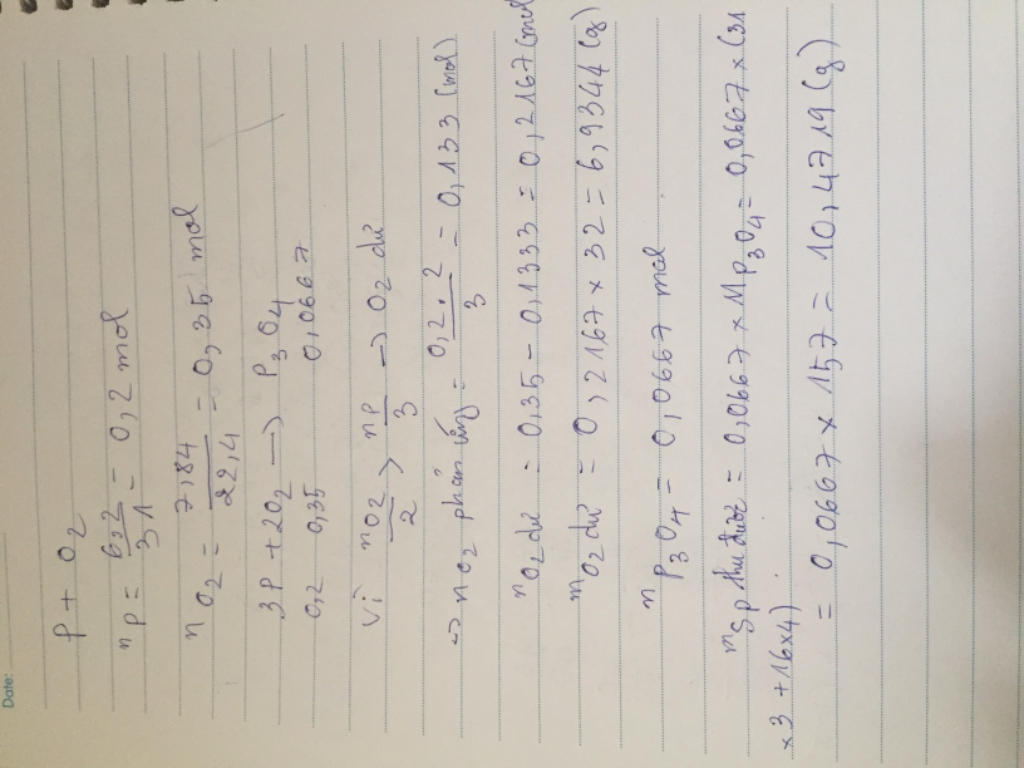 Date:
P + O2
nP = 6,2/31 = 0,2 mol
nO2 = 7,84/22,4 = 0,35 mol
3P + 2O2 → P3O4
0,2 0,35 0,0667
Vì nO2/2 > nP/3 → O2 dư
→ nO2 phản ứng = 0,2.2/3 = 0,133 (mol)
nO2 dư = 0,35 - 0,1333 = 0,2167 (mol
mO2 dư = 0,2167 x 32 = 6,9344 (g)
nP3O4 = 0,0667 mol
mSp thu được = 0,0667 x MP3O4 = 0,0667 x (31
x3 + 16x4)
= 0,0667 x 157 = 10,4719 (g)